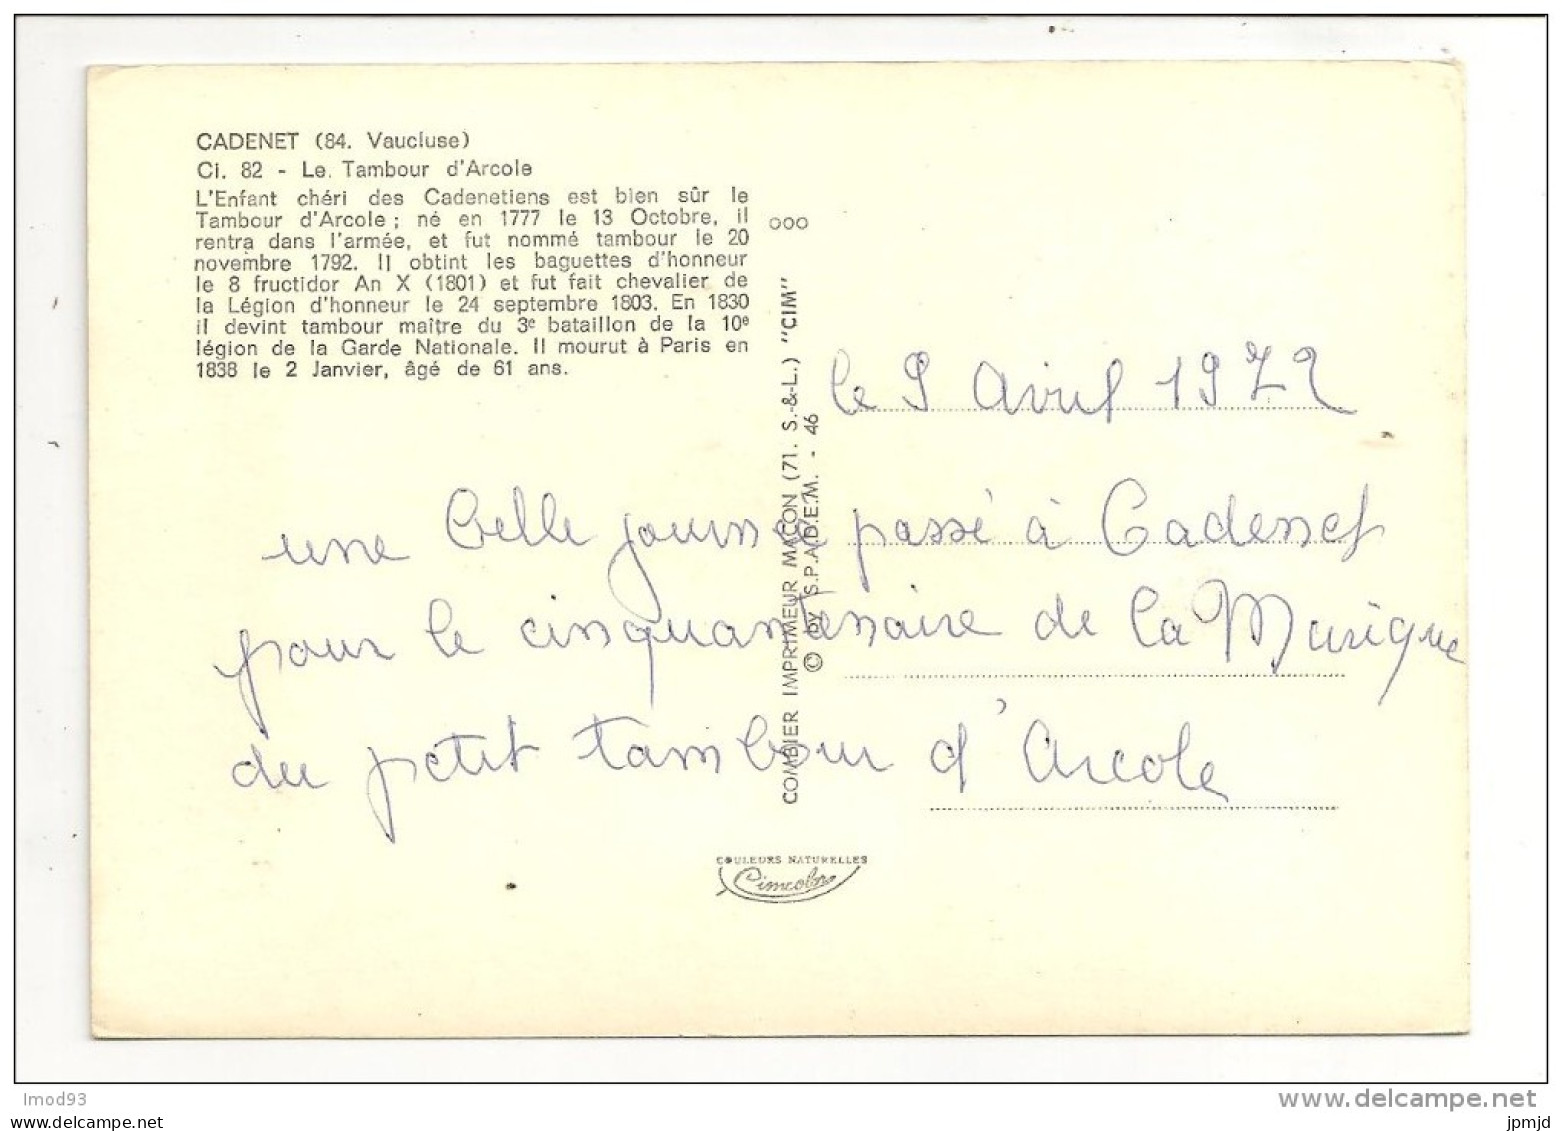 CADENET (84. Vaucluse)
Ci. 82 - Le. Tambour d'Arcole
L'Enfant chéri des Cadenetiens est bien sûr le
Tambour d'Arcole ; né en 1777 le 13 Octobre, il
rentra dans l'armée, et fut nommé tambour le 20
novembre 1792. Il obtint les baguettes d'honneur
le 8 fructidor An X (1801) et fut fait chevalier de
la Légion d'honneur le 24 septembre 1803. En 1830
il devint tambour maître du 3e bataillon de la 10e
légion de la Garde Nationale. Il mourut à Paris en
1838 le 2 Janvier, âgé de 61 ans.
ooo
COMBIER IMPRIMEUR MACON (71. S.-&-L.) "CIM"
© by S.P.A.D.E.M. - 46
le 9 Avril 1972
une belle journée passé à Cadenet
pour le cinquantenaire de la Musique
du petit tambour d'Arcole
COULEURS NATURELLES
Cimcolor
lmod93
www.delcampe.net
jpmjd